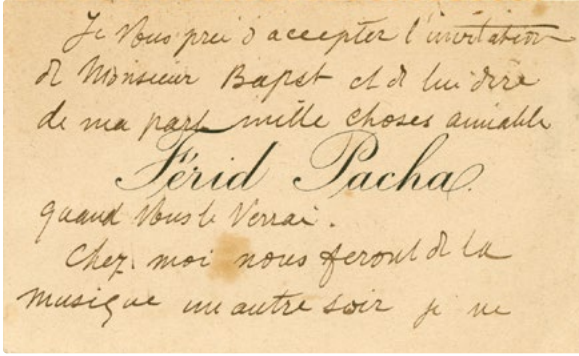 Je Vous prei d accepter l'invitation
de Monsieur Bapst et de lui dire
de ma part mille choses amiable
Férid Pacha.
quand Vous le Verrai.
Chez moi nous feront de la
musique un autre soir je ne